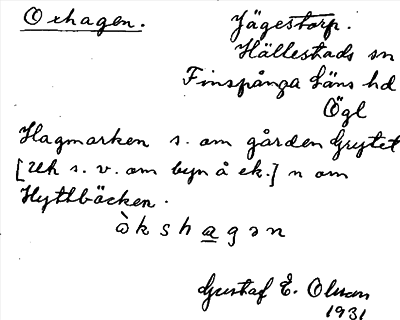 Oxhagen. Jägestorp.
Hällestads sn
Finspånga läns hd
Ögl
Hagmarken s. om gården Grytet
[Uh s. v. om byn å ek.] n om
Hyttbäcken.
ò̀kshag̲ən
Gustaf E. Olsson
1931